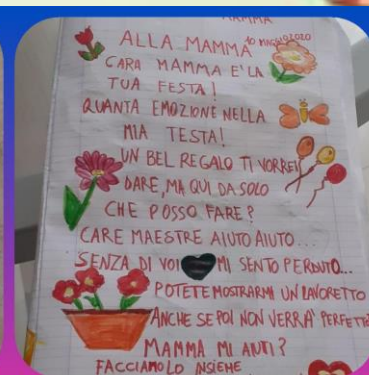 MAMMA
ALLA MAMMA 10 MAGGIO 2020
CARA MAMMA E' LA
TUA FESTA!
QUANTA EMOZIONE NELLA
MIA TESTA!
UN BEL REGALO TI VORREI
DARE, MA QUI DA SOLO
CHE POSSO FARE?
CARE MAESTRE AIUTO AIUTO...
SENZA DI VOI MI SENTO PERDUTO...
POTETE MOSTRARMI UN LAVORETTO
ANCHE SE POI NON VERRA' PERFETTO
MAMMA MI AIUTI?
FACCIAMOLO INSIEME